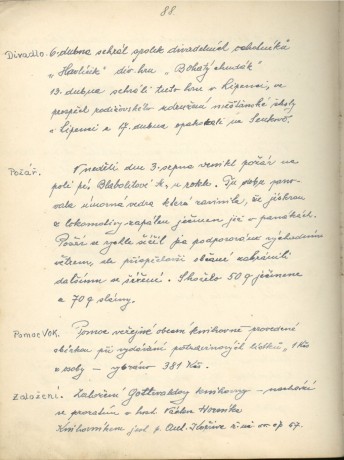 88.
Divadlo. 6. dubna sehrál spolek divadelních ochotníků
"Havlíček" div. hru "Bohatý chudák"
13. dubna sehráli tuto hru v Lipenci, ve
prospěch rodičovského sdružení měšťanské školy
v Lipenci a 17. dubna opakovali ve
Požár. V neděli dne 3. srpna vznikl požár na
poli pí. Blabolilové u tratě. Tu dobu pano-
vala úmorná vedra která zavinila, že jiskrou
z lokomotivy zapálen ječmen již v panácích.
Požár se rychle šířil jsa podporován východním
větrem, ale přispěchavší občané zabránili
dalšímu se šíření. Shořelo 50 q ječmene
a 70 q slámy.
Pomoc VOK. Pomoc veřejné obecní knihovně - provedena
sbírkou při vydávání potravinových lístků, 1 Kčs
z osoby - vybráno 381 Kčs.
Založení. Založení Gottwaldovy knihovny -
se prozatím v hosp. Václav
Knihovníkem jest p. Ant. čp. 67.